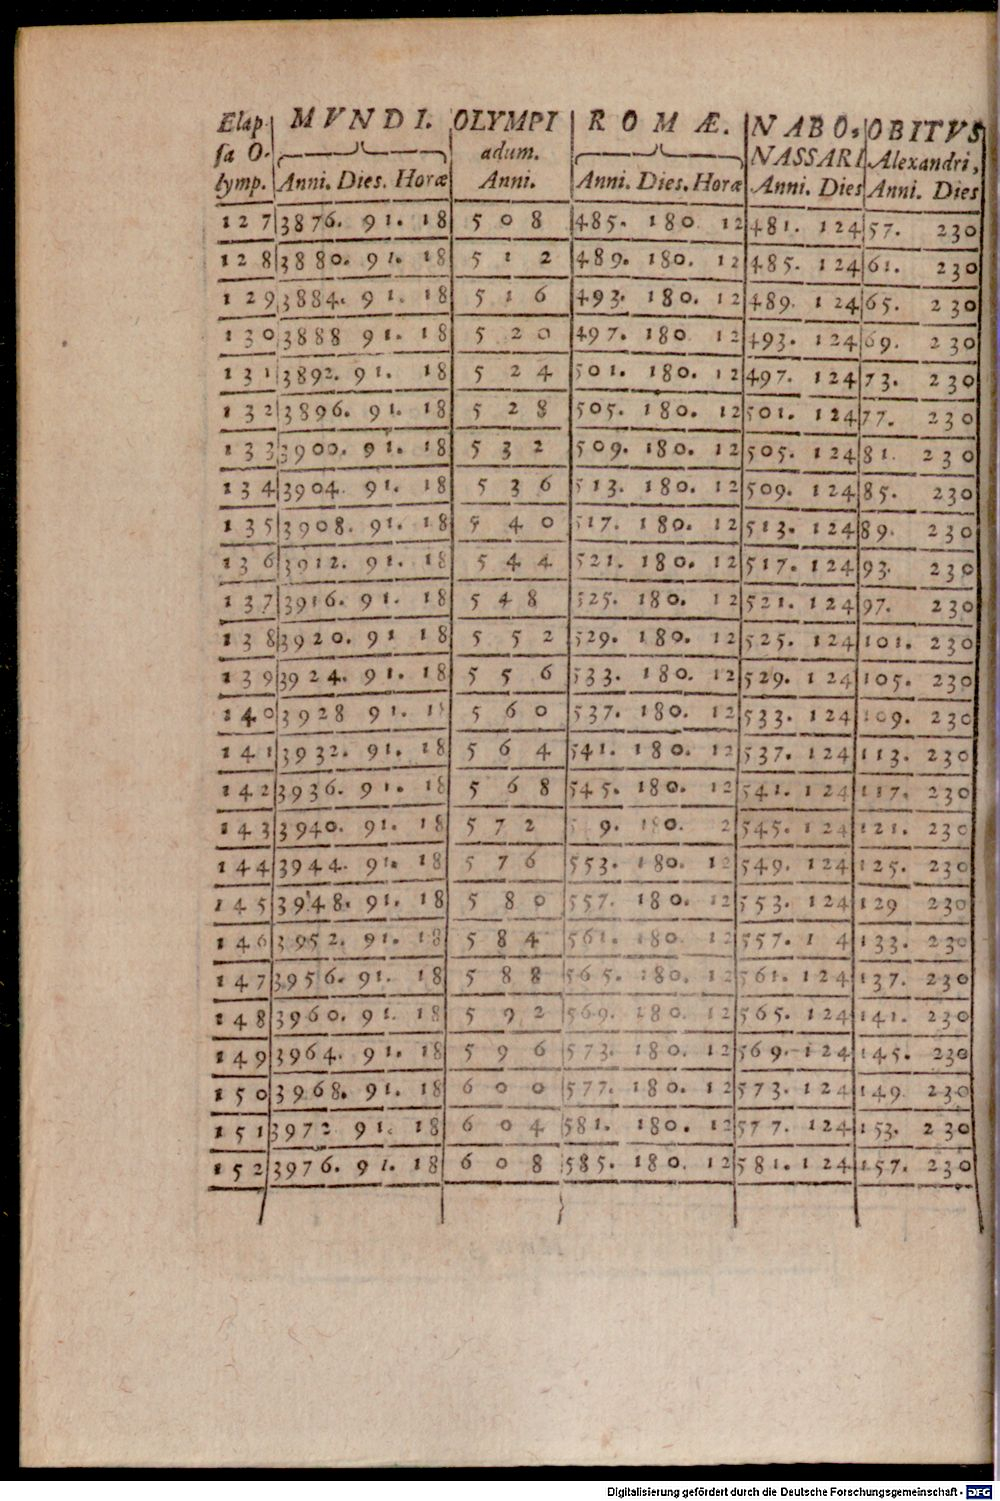 Elap- M V N D I. OLYMPI R O M Æ. N A B O- OBITVS
ſa O- adum. NASSARI Alexandri,
lymp. Anni. Dies. Horæ Anni. Anni. Dies. Horæ Anni. Dies Anni. Dies
127 3876. 91. 18 508 485. 180 12 481. 124 57. 230
128 3880. 91. 18 512 489. 180. 12 485. 124 61. 230
129 3884. 91. 18 516 493. 180. 12 489. 124 65. 230
130 3888 91. 18 520 497. 180 12 493. 124 69. 230
131 3892. 91. 18 524 501. 180. 12 497. 124 73. 230
132 3896. 91. 18 528 505. 180. 12 501. 124 77. 230
133 3900. 91. 18 532 509. 180. 12 505. 124 81. 230
134 3904. 91. 18 536 513. 180. 12 509. 124 85. 230
135 3908. 91. 18 540 517. 180. 12 513. 124 89. 230
136 3912. 91. 18 544 521. 180. 12 517. 124 93. 230
137 3916. 91. 18 548 525. 180. 12 521. 124 97. 230
138 3920. 91 18 552 529. 180. 12 525. 124 101. 230
139 3924. 91. 18 556 533. 180. 12 529. 124 105. 230
140 3928 91. 18 560 537. 180. 12 533. 124 109. 230
141 3932. 91. 18 564 541. 180. 12 537. 124 113. 230
142 3936. 91. 18 568 545. 180. 12 541. 124 117. 230
143 3940. 91. 18 572 9. 180. 2 545. 124 121. 230
144 3944. 91. 18 576 553. 180. 12 549. 124 125. 230
145 3948. 91. 18 580 557. 180. 12 553. 124 129 230
146 3952. 91. 18 584 561. 180. 12 557. 1 4 133. 230
147 3956. 91. 18 588 565. 180. 12 561. 124 137. 230
148 3960. 91. 18 592 569. 180. 12 565. 124 141. 230
149 3964. 91. 18 596 573. 180. 12 569. 124 145. 230
150 3968. 91. 18 600 577. 180. 12 573. 124 149 230
151 3972 91. 18 604 581. 180. 12 577. 124 153. 230
152 3976. 91. 18 608 585. 180. 12 581. 124 157. 230
Digitalisierung gefördert durch die Deutsche Forschungsgemeinschaft - DFG